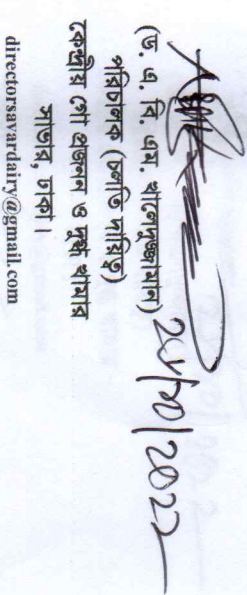 ২৫/১০/২০২২
(ড. এ. বি এম. খালেদুজ্জামান)
পরিচালক (চলতি দায়িত্ব)
কেন্দ্রীয় গো প্রজনন ও দুগ্ধ খামার
সাভার, ঢাকা।
directorsavardairy@gmail.com